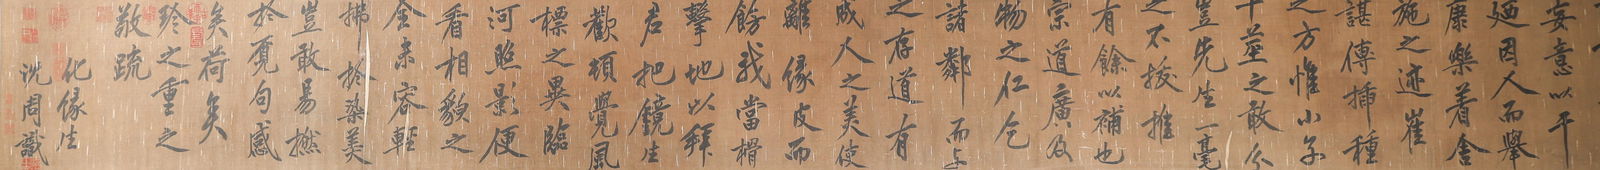 妄意以干
廼因人而舉
康樂著舍
施之迹崔
諶傳插種
之方惟小子
十莖之敢分
豈先生一毫
之不拔推
有餘以補也
宗道廣及
物之仁乞
諸鄰而与
之存道有
成人之美使
離緣皮而
飾我當榾
擊地以拜
君把鏡生
歡頓覺風
標之異臨
河照影便
看相貌之
全未容輕
拂於染羹
豈敢易撚
於覓句感
矣荷矣
珍之重之
敬疏
化緣生
沈周識